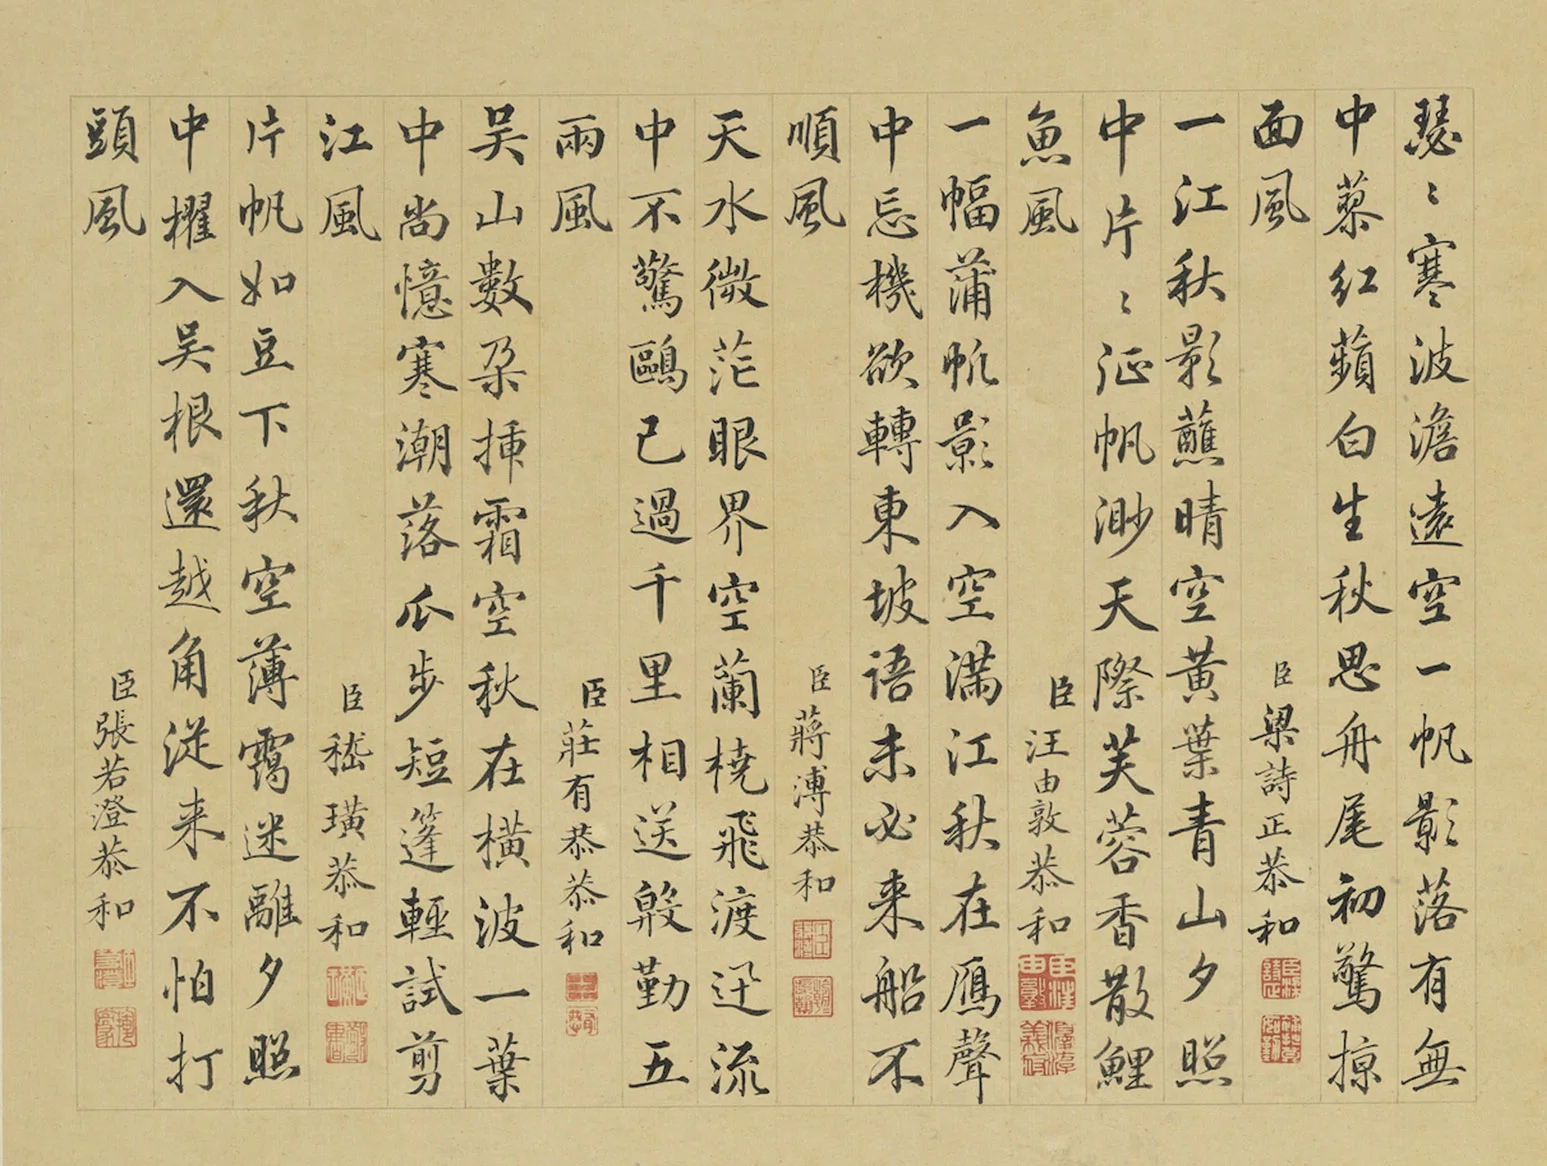 瑟〻寒波澹遠空一帆影落有無
中蓼紅蘋白生秋思舟尾初驚掠
面風
臣梁詩正恭和
一江秋影蘸晴空黃葉青山夕照
中片〻征帆渺天際芙蓉香散鯉
魚風
臣汪由敦恭和
一幅蒲帆影入空滿江秋在鴈聲
中忘機欲轉東坡語未必来船不
順風
臣蔣溥恭和
天水微茫眼界空蘭橈飛渡迅流
中不驚鷗已過千里相送殷勤五
兩風
臣莊有恭恭和
吴山數朶揷霜空秋在橫波一葉
中尚憶寒潮落瓜步短篷輕試剪
江風
臣嵇璜恭和
片帆如豆下秋空薄靄迷離夕照
中櫂入吴根還越角従来不怕打
頭風
臣張若澄恭和